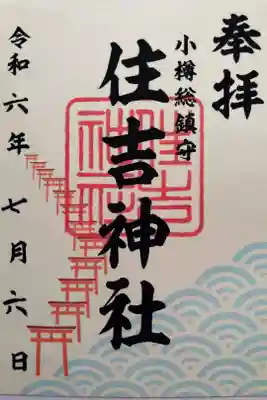 奉拝
小樽総鎮守
住吉神社
令和六年七月六日
住吉神社